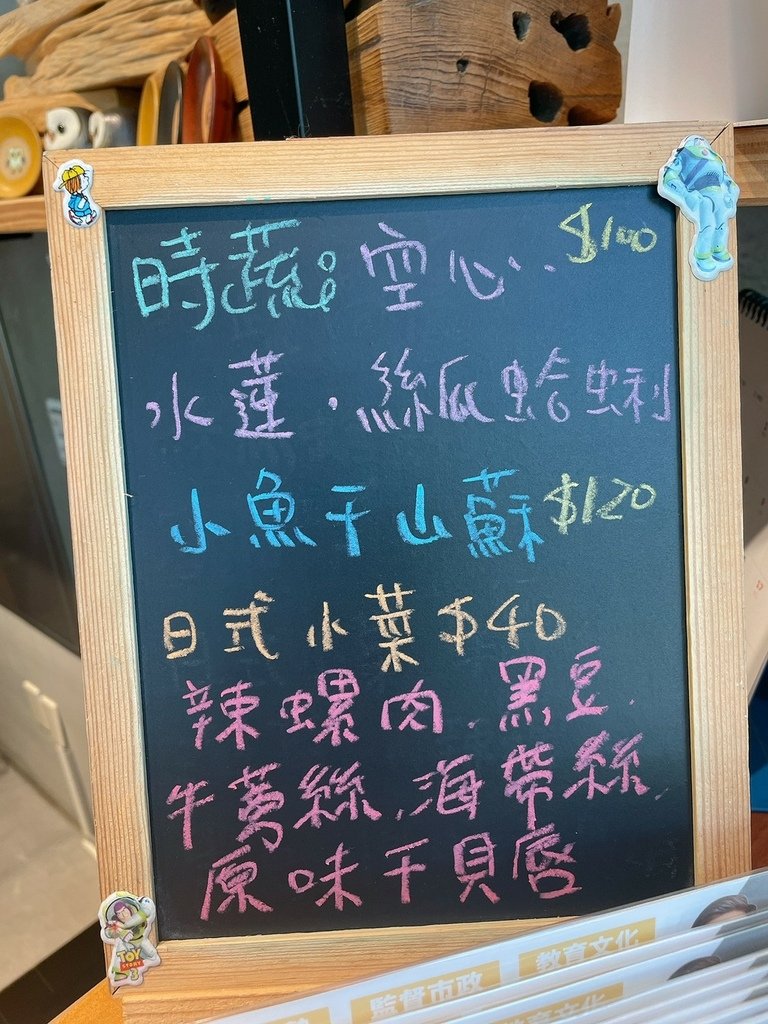 時蔬:空心.. $100
水蓮.絲瓜蛤蜊
小魚干山蘇$120
日式小菜$40
辣螺肉.黑豆.
牛蒡絲.海帶絲.
原味干貝唇
TOY
STORY
3
監督市政 教育文化
教育文化